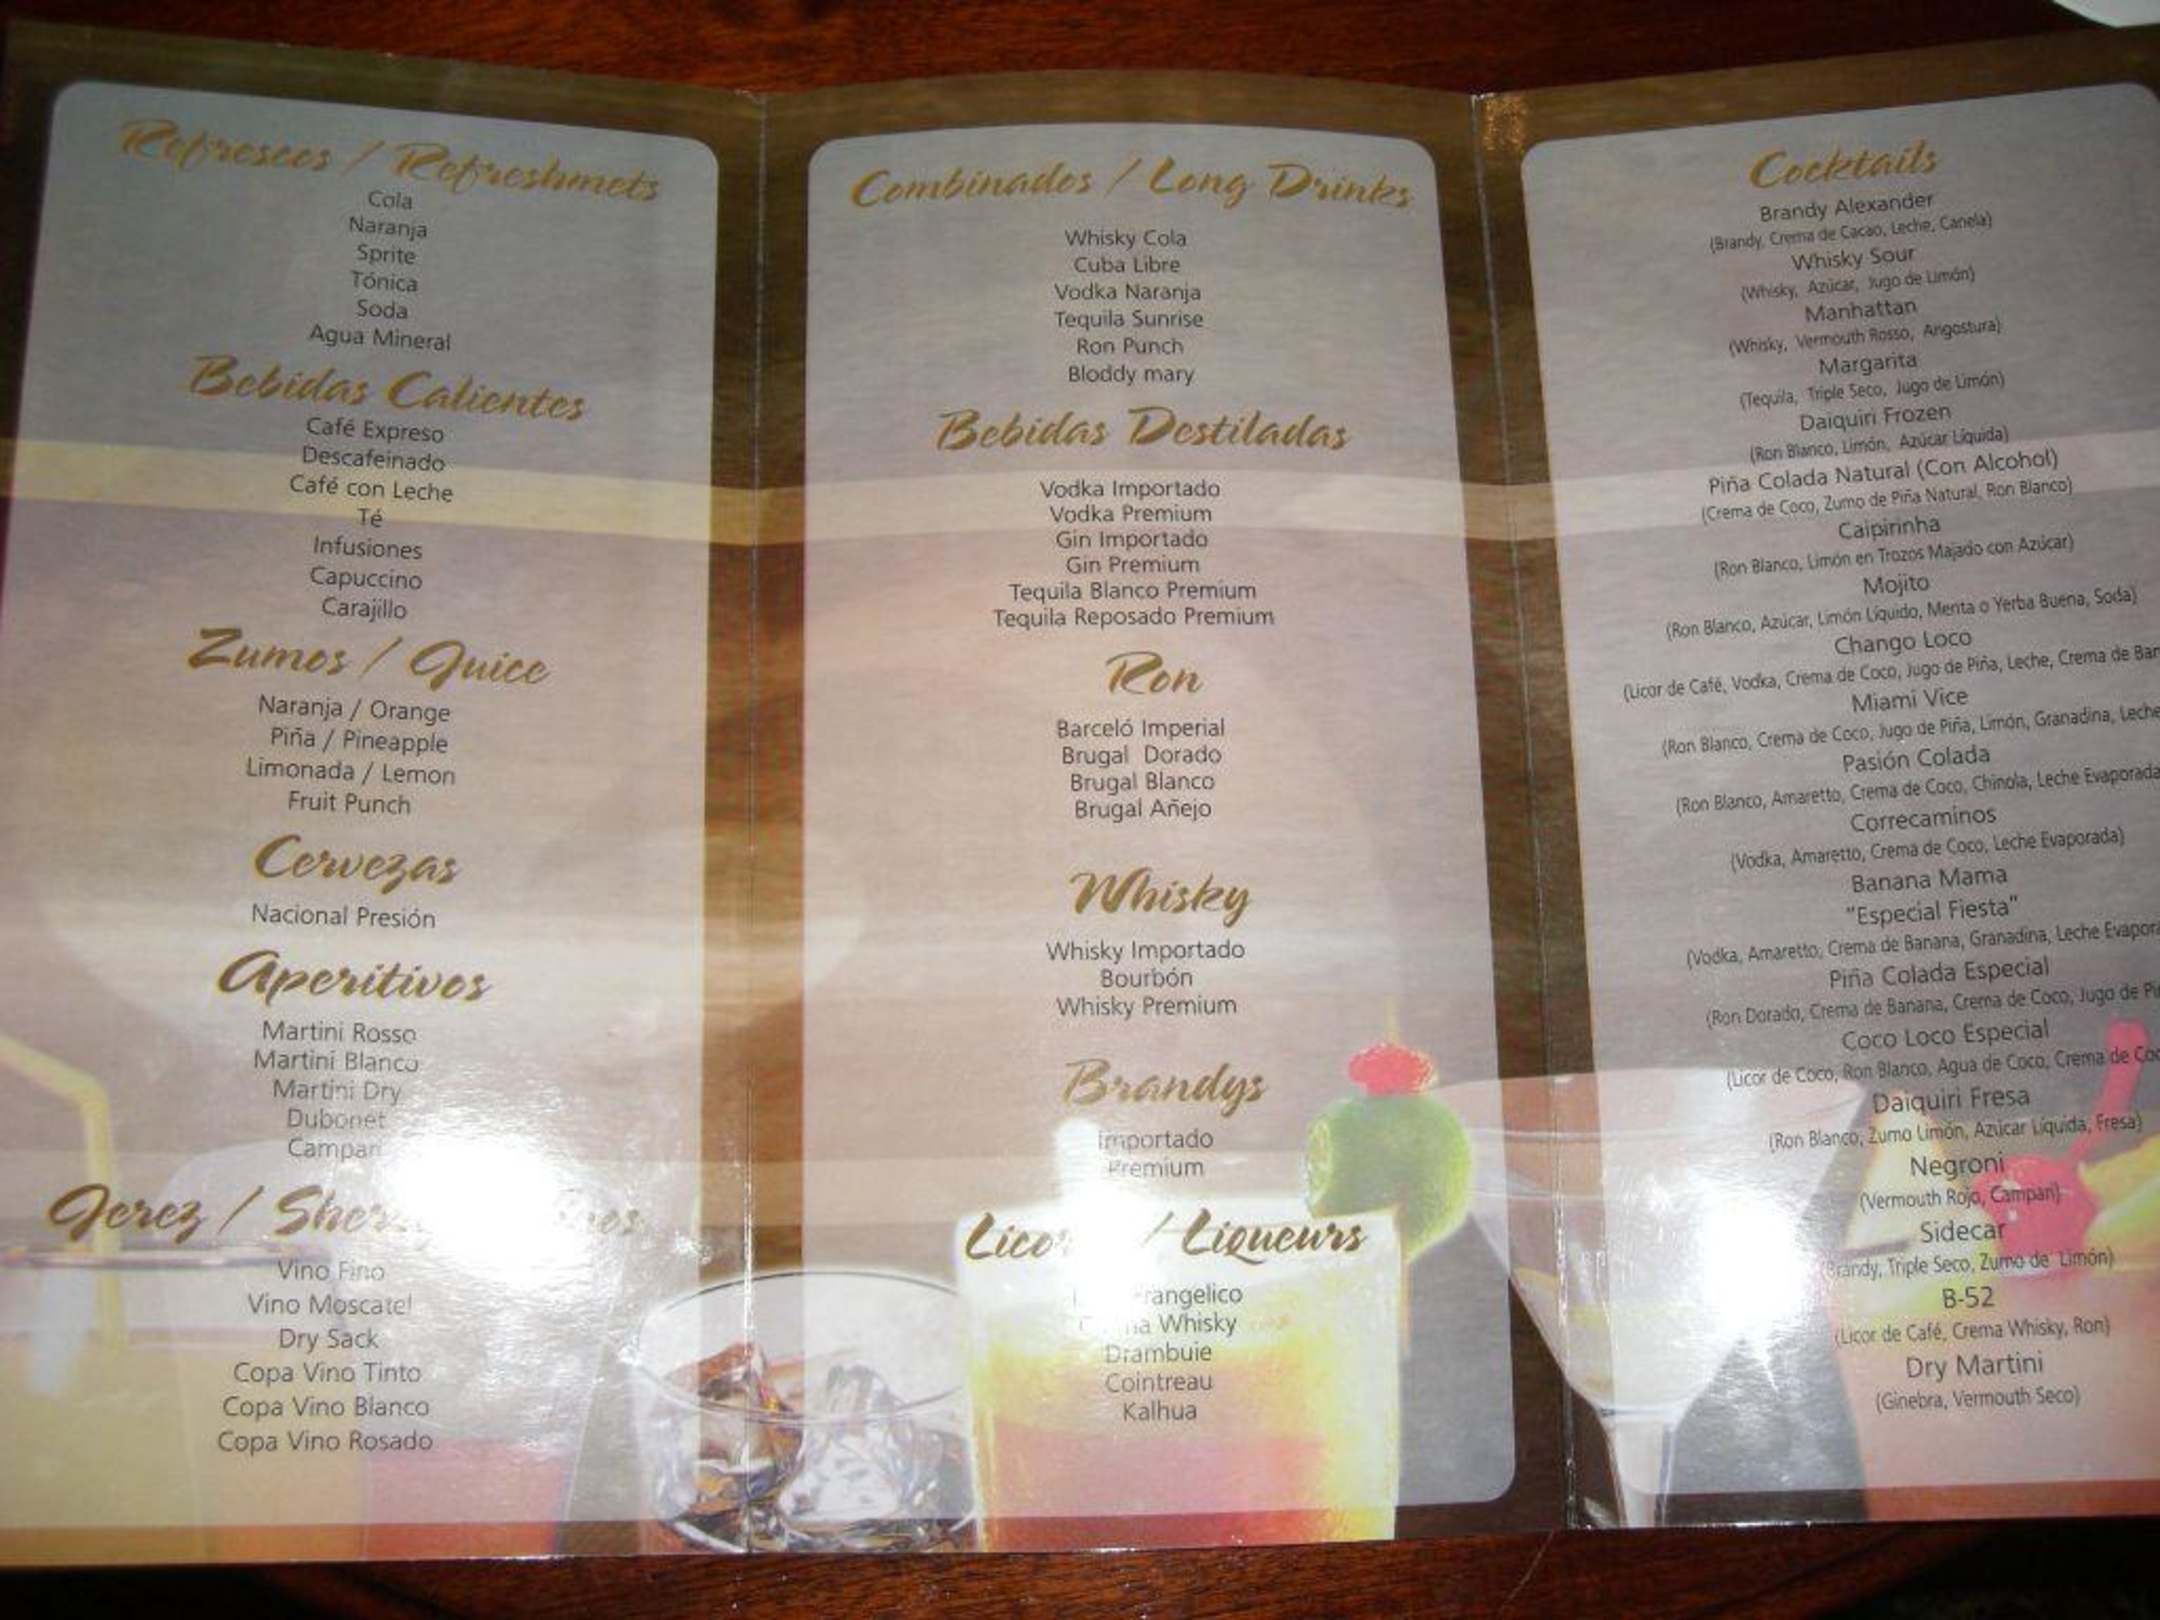 Refrescos / Refreshmets
Cola
Naranja
Sprite
Tónica
Soda
Agua Mineral
Bebidas Calientes
Café Expreso
Descafeinado
Café con Leche
Té
Infusiones
Capuccino
Carajillo
Zumos / Juice
Naranja / Orange
Piña / Pineapple
Limonada / Lemon
Fruit Punch
Cervezas
Nacional Presión
Aperitivos
Martini Rosso
Martini Blanco
Martini Dry
Dubonet
Campari
Jerez /
Vino Fino
Vino Moscatel
Dry Sack
Copa Vino Tinto
Copa Vino Blanco
Copa Vino Rosado
Combinados / Long Drinks
Whisky Cola
Cuba Libre
Vodka Naranja
Tequila Sunrise
Ron Punch
Bloddy mary
Bebidas Destiladas
Vodka Importado
Vodka Premium
Gin Importado
Gin Premium
Tequila Blanco Premium
Tequila Reposado Premium
Ron
Barceló Imperial
Brugal Dorado
Brugal Blanco
Brugal Añejo
Whisky
Whisky Importado
Bourbón
Whisky Premium
Brandys
Importado
Premium
/ Liqueurs
Whisky
Drambuie
Cointreau
Kalhua
Cocktails
Brandy Alexander
(Brandy, Crema de Cacao, Leche, Canela)
Whisky Sour
(Whisky, Azúcar, Jugo de Limón)
Manhattan
(Whisky, Vermouth Rosso, Angostura)
Margarita
(Tequila, Triple Seco, Jugo de Limón)
Daiquiri Frozen
(Ron Blanco, Limón, Azúcar Líquida)
Piña Colada Natural (Con Alcohol)
(Crema de Coco, Zumo de Piña Natural, Ron Blanco)
Caipirinha
(Ron Blanco, Limón en Trozos Majado con Azúcar)
Mojito
(Ron Blanco, Azúcar, Limón Líquido, Menta o Yerba Buena, Soda)
Chango Loco
(Licor de Café, Vodka, Crema de Coco, Jugo de Piña, Leche, Crema de
Miami Vice
(Ron Blanco, Crema de Coco, Jugo de Piña, Limón, Granadina, Leche
Pasión Colada
(Ron Blanco, Amaretto, Crema de Coco, Chinola, Leche Evaporada
Correcaminos
(Vodka, Amaretto, Crema de Coco, Leche Evaporada)
Banana Mama
"Especial Fiesta"
(Vodka, Amaretto, Crema de Banana, Granadina, Leche
Piña Colada Especial
(Ron Dorado, Crema de Banana, Crema de Coco, Jugo de
Coco Loco Especial
(Licor de Coco, Ron Blanco, Agua de Coco, Crema de
Daiquiri Fresa
(Ron Blanco, Zumo Limón, Azúcar Líquida, Fresa)
Negroni
(Vermouth Rojo, Campari)
Sidecar
(Brandy, Triple Seco, Zumo de Limón)
B-52
(Licor de Café, Crema Whisky, Ron)
Dry Martini
(Ginebra, Vermouth Seco)